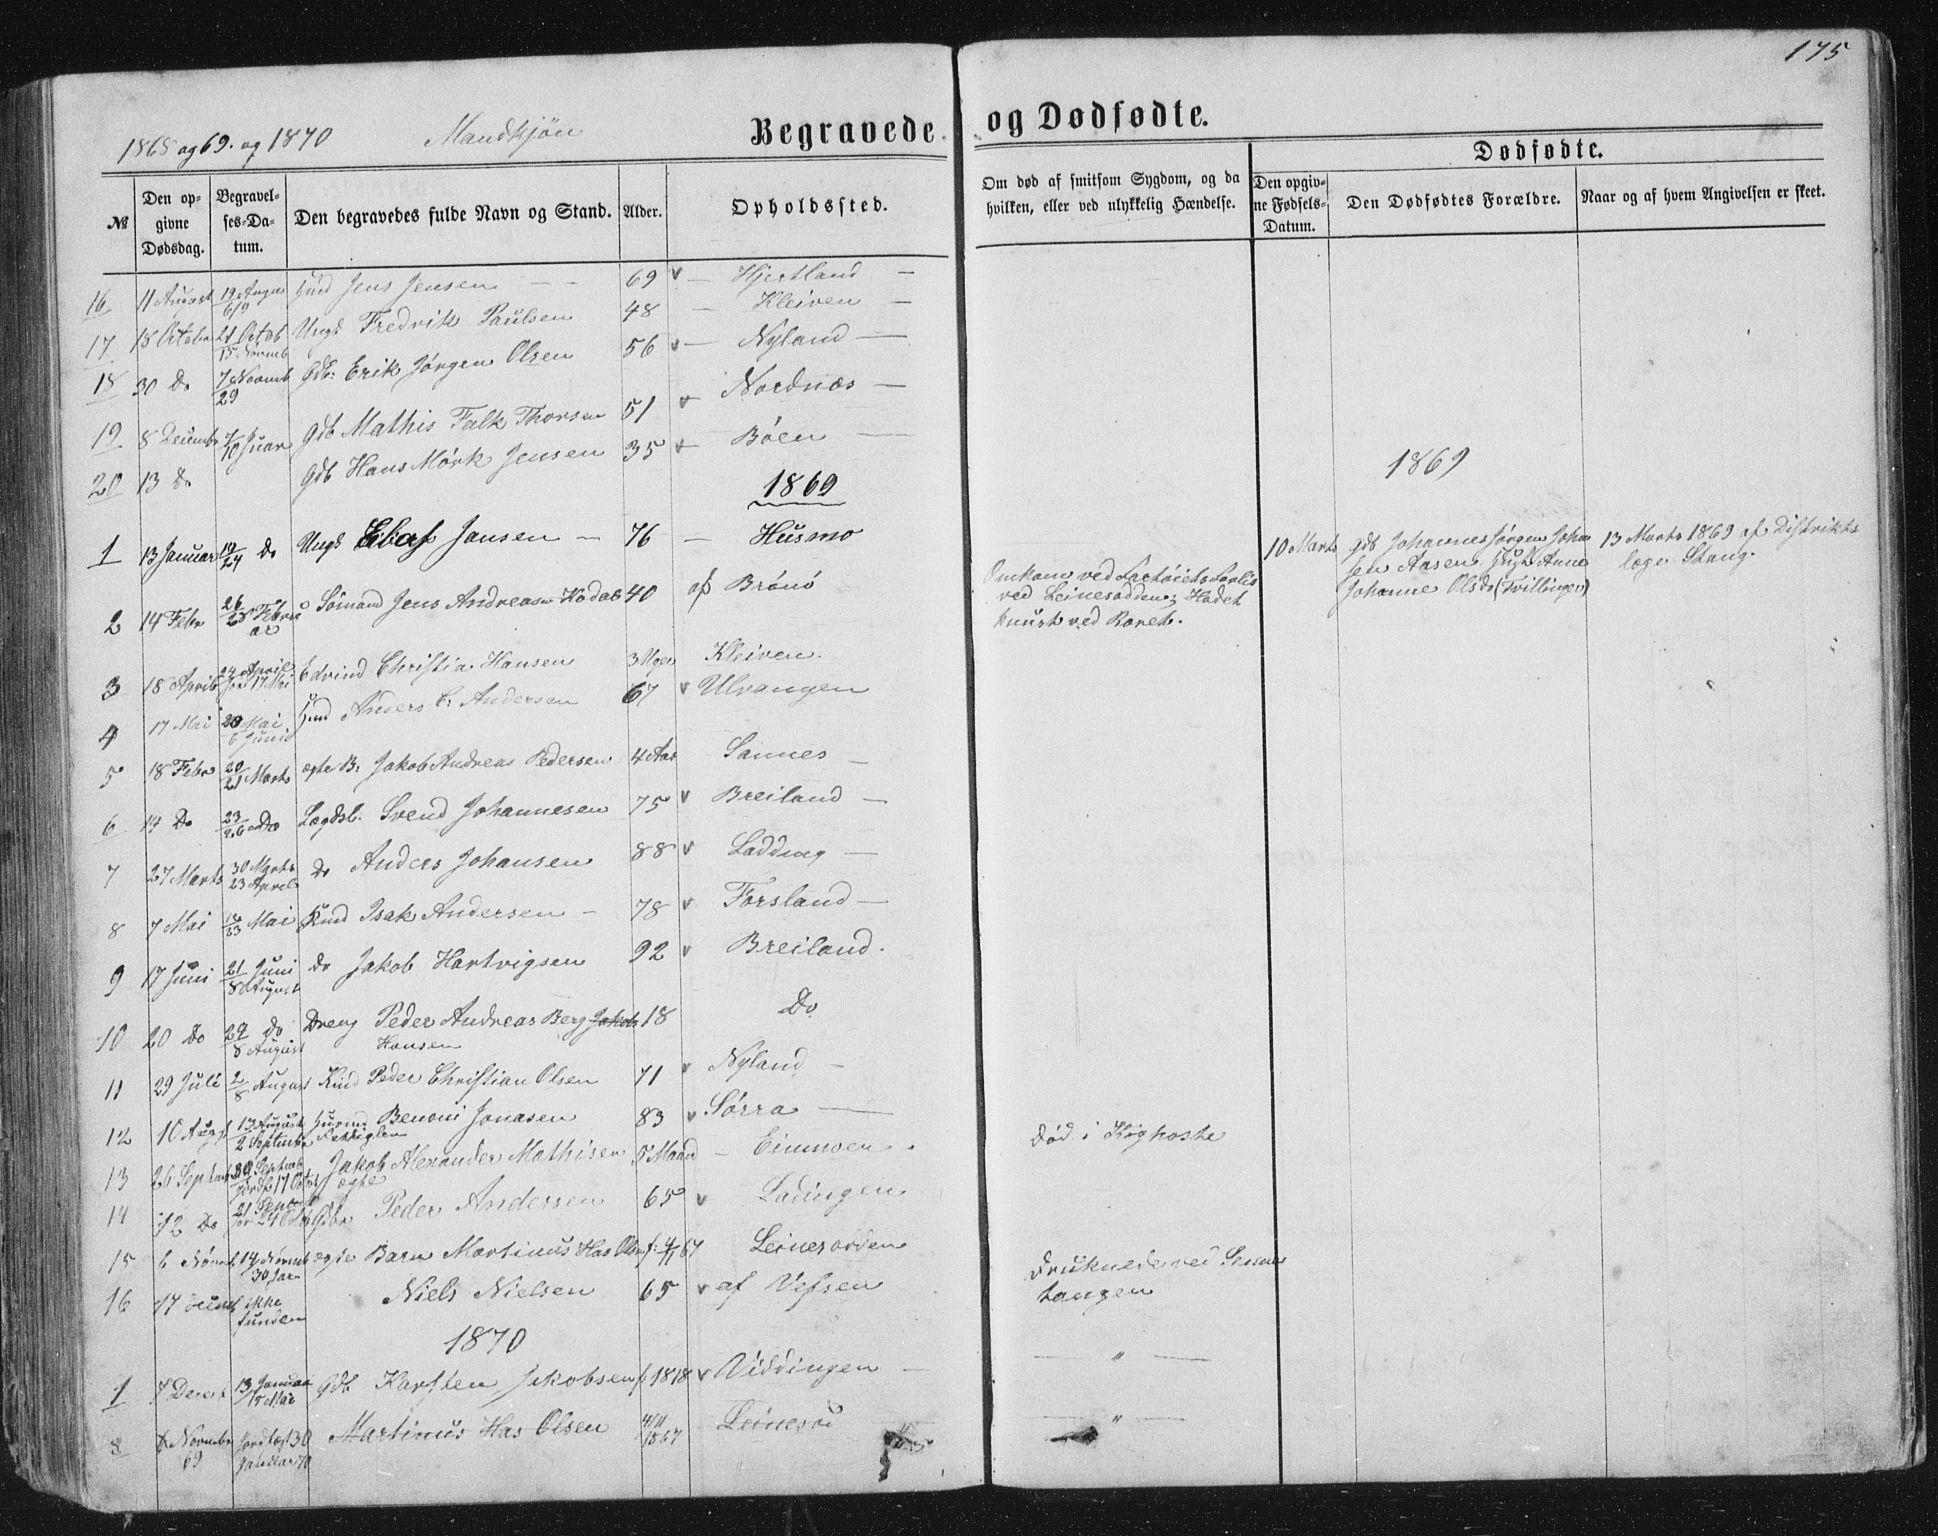 175
1868 og 69. og 1870 Mandkjön Begravede og Dødfødte.
№ Den opgivne Dødsdag. Begravelses-Datum. Den begravedes fulde Navn og Stand. Alder. Opholdssted. Om død af smitsom Sygdom, og da hvilken, eller ved ulykkelig Hændelse. Dødfødte. Den opgivne Fødsels-Datum. Den Dødfødtes Forældre. Naar og af hvem Angivelsen er skeet.
16 11 August 19 August 6/9 Jens Jensen 69 v Hjertland
17 18 Octobr 21 Octob 15 Novmb Ungk Fredrik Paulsen 48 Kleiven
18 30 Do 7 Novmb 29 Gdb: Erik Jørgen Olsen 56 v Nyland
19 8 Decembr Gdb Mathis Falk Thorsen 51 v Nordnæs
20 13 Do Gdb Hans Mørk Jensen 35 v Bøen
1869
1869
1 13 Januar 19/24 Do Ungk Jansen 76 Husmo
10 Marts Gdb Johannes Jørgen Johan
sen Aasen Anne
Johanne Olsd (Tvillinger)
13 Marts 1869 af Distrikts
læge Stang.
2 14 Febr 26/28 Februar Sömand Jens Andreas 40 af Brönö
Omkom ved Fartöiets Forlis
ved Leinesodden; Hodet
knust ved Roret.
3 18 April 24 April 17 Mai Edvind Christia. Hansen 3 Uger Kleiven.
4 17 Mai 20 Mai 6 Juni Anders C: Andersen 67 v Ulvangen
5 18 Febr 20/21 Marts ægte B: Jakob Andreas Pedersen 4 Aar Sannes
6 14 Do 23/26 Do Lægdsl. Svend Johannesen 75 v Breiland
7 27 Marts 30 Marts 23 April Do Anders Johansen 88 v Ladding
8 7 Mai 12/23 Mai Isak Andersen 78 v Forsland
9 17 Juni 21 Juni 8 August do Jakob Hartvigsen 92 v Breiland.
10 20 Do 24 do 8 August Dreng Peder Andreas Berg Hansen 18 Do
11 29 Juli 2/8 August Peder Christian Olsen 71 v Nyland
12 10 Augst 13 August 2 Septmbr Benoni Jonasen 83 v Sörra
13 26 Septmb 30 Septmb 17 Octbr Jakob Alexander Mathisen ægte 5 Maand Einmoen. död i Kighoste
14 12 Do 21 24 Octb Peder Andersen 65 v Ladingen
15 6 Novmb 14 Novmb 30 Jan ægte Barn Martinus Has Olsen f: 4/11 67 Leinesodden
16 17 Decmb ikke funden Niels Nielsen 65 v af Vefsen druknede ved
tangen
1870
1 7 Decmb 13 Januar 15 Mai Gdb Karsten Jakobsen f: 1818 v Viddingen — " —
8 Novmbr 69 Jordfæst 30 Januar 70 Martinus Has Olsen 4/11 1867 — " —